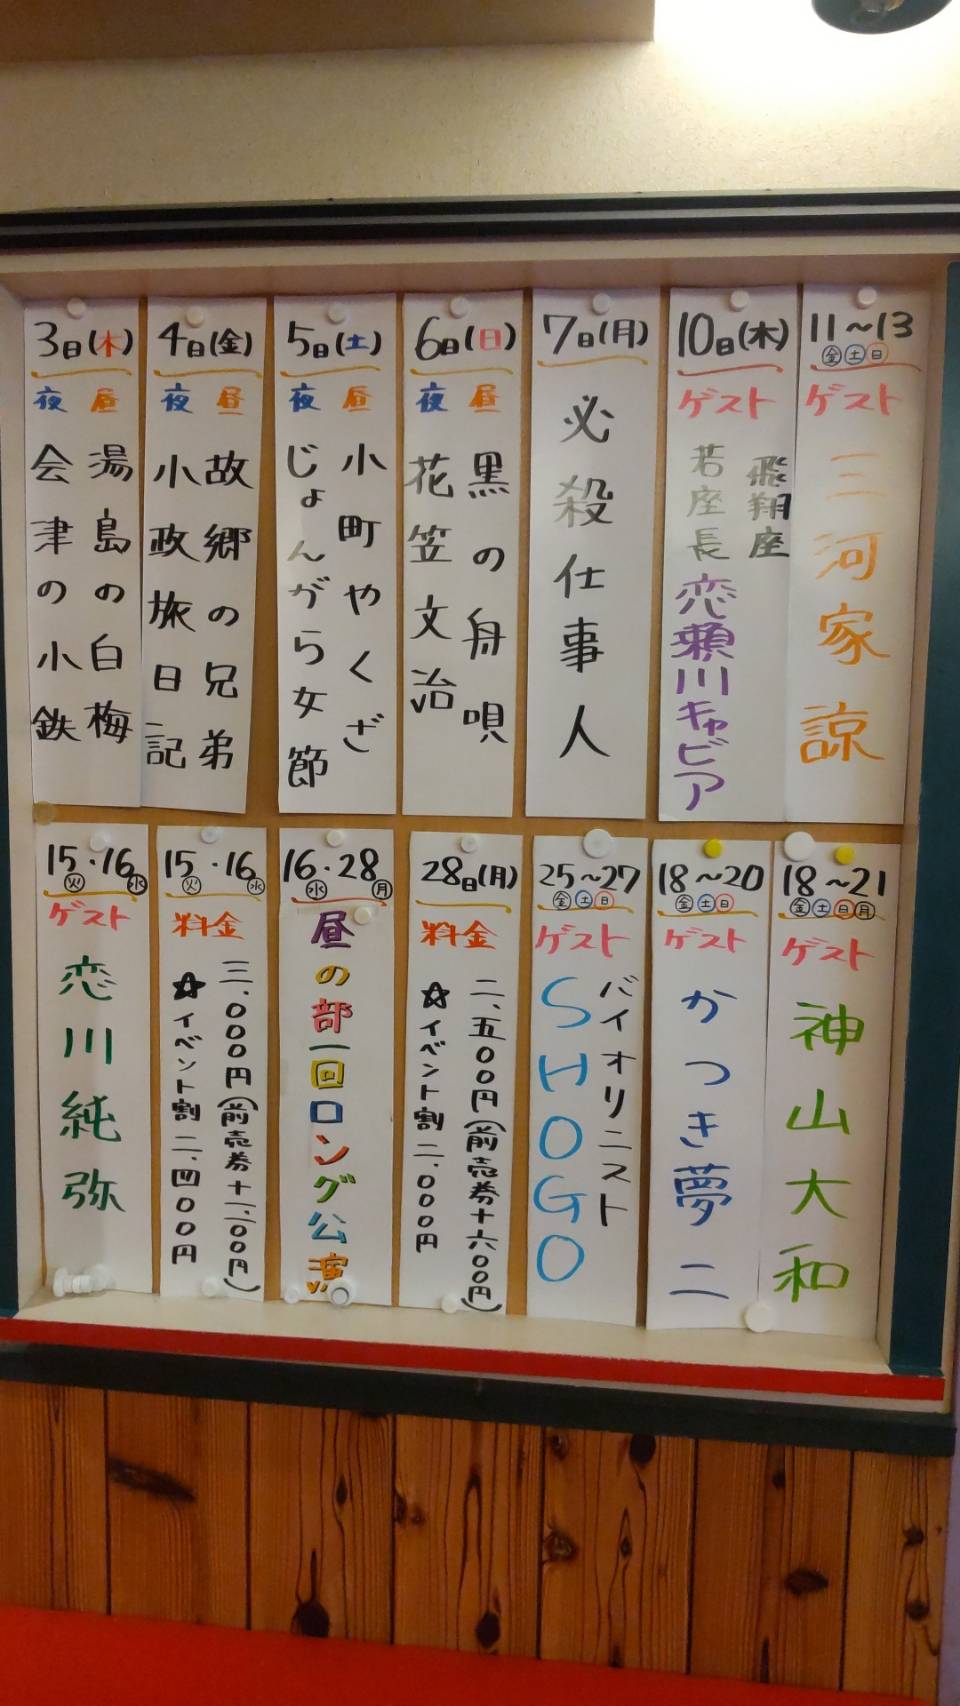 3日(木)
昼 湯島の白梅
夜 会津の小鉄
4日(金)
昼 故郷の兄弟
夜 小政旅日記
5日(土)
昼 小町やくざ
夜 じょんがら女節
6日(日)
昼 黒の舟唄
夜 花笠文治
7日(月)
必殺仕事人
10日(木)
ゲスト
飛翔座
若座長 恋瀬川キャビア
11～13
金土日
ゲスト
三河家諒
15・16
火 水
ゲスト
恋川純弥
15・16
火 水
料金
三、000円(前売券+一、100円)
☆イベント割 二、四00円
16・28
水 月
昼の部一回ロング公演
28日(月)
料金
二、五00円(前売券+六00円)
☆イベント割 二、000円
25～27
金土日
ゲスト
バイオリニスト
SHOGO
18～20
金土日
ゲスト
かつき夢二
18～21
金土日月
ゲスト
神山大和